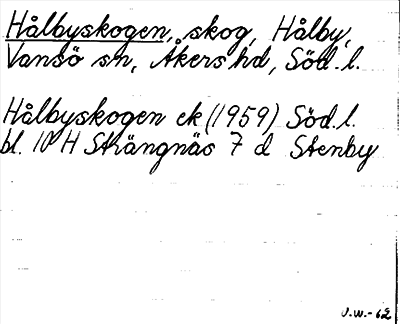 Hålbyskogen, skog, Hålby,
Vansö sn, Åkers hd, Söd. l.
Hålbyskogen ek (1959) Söd. l.
bl. 10 H Strängnäs 7 d Stenby
J.W.-62